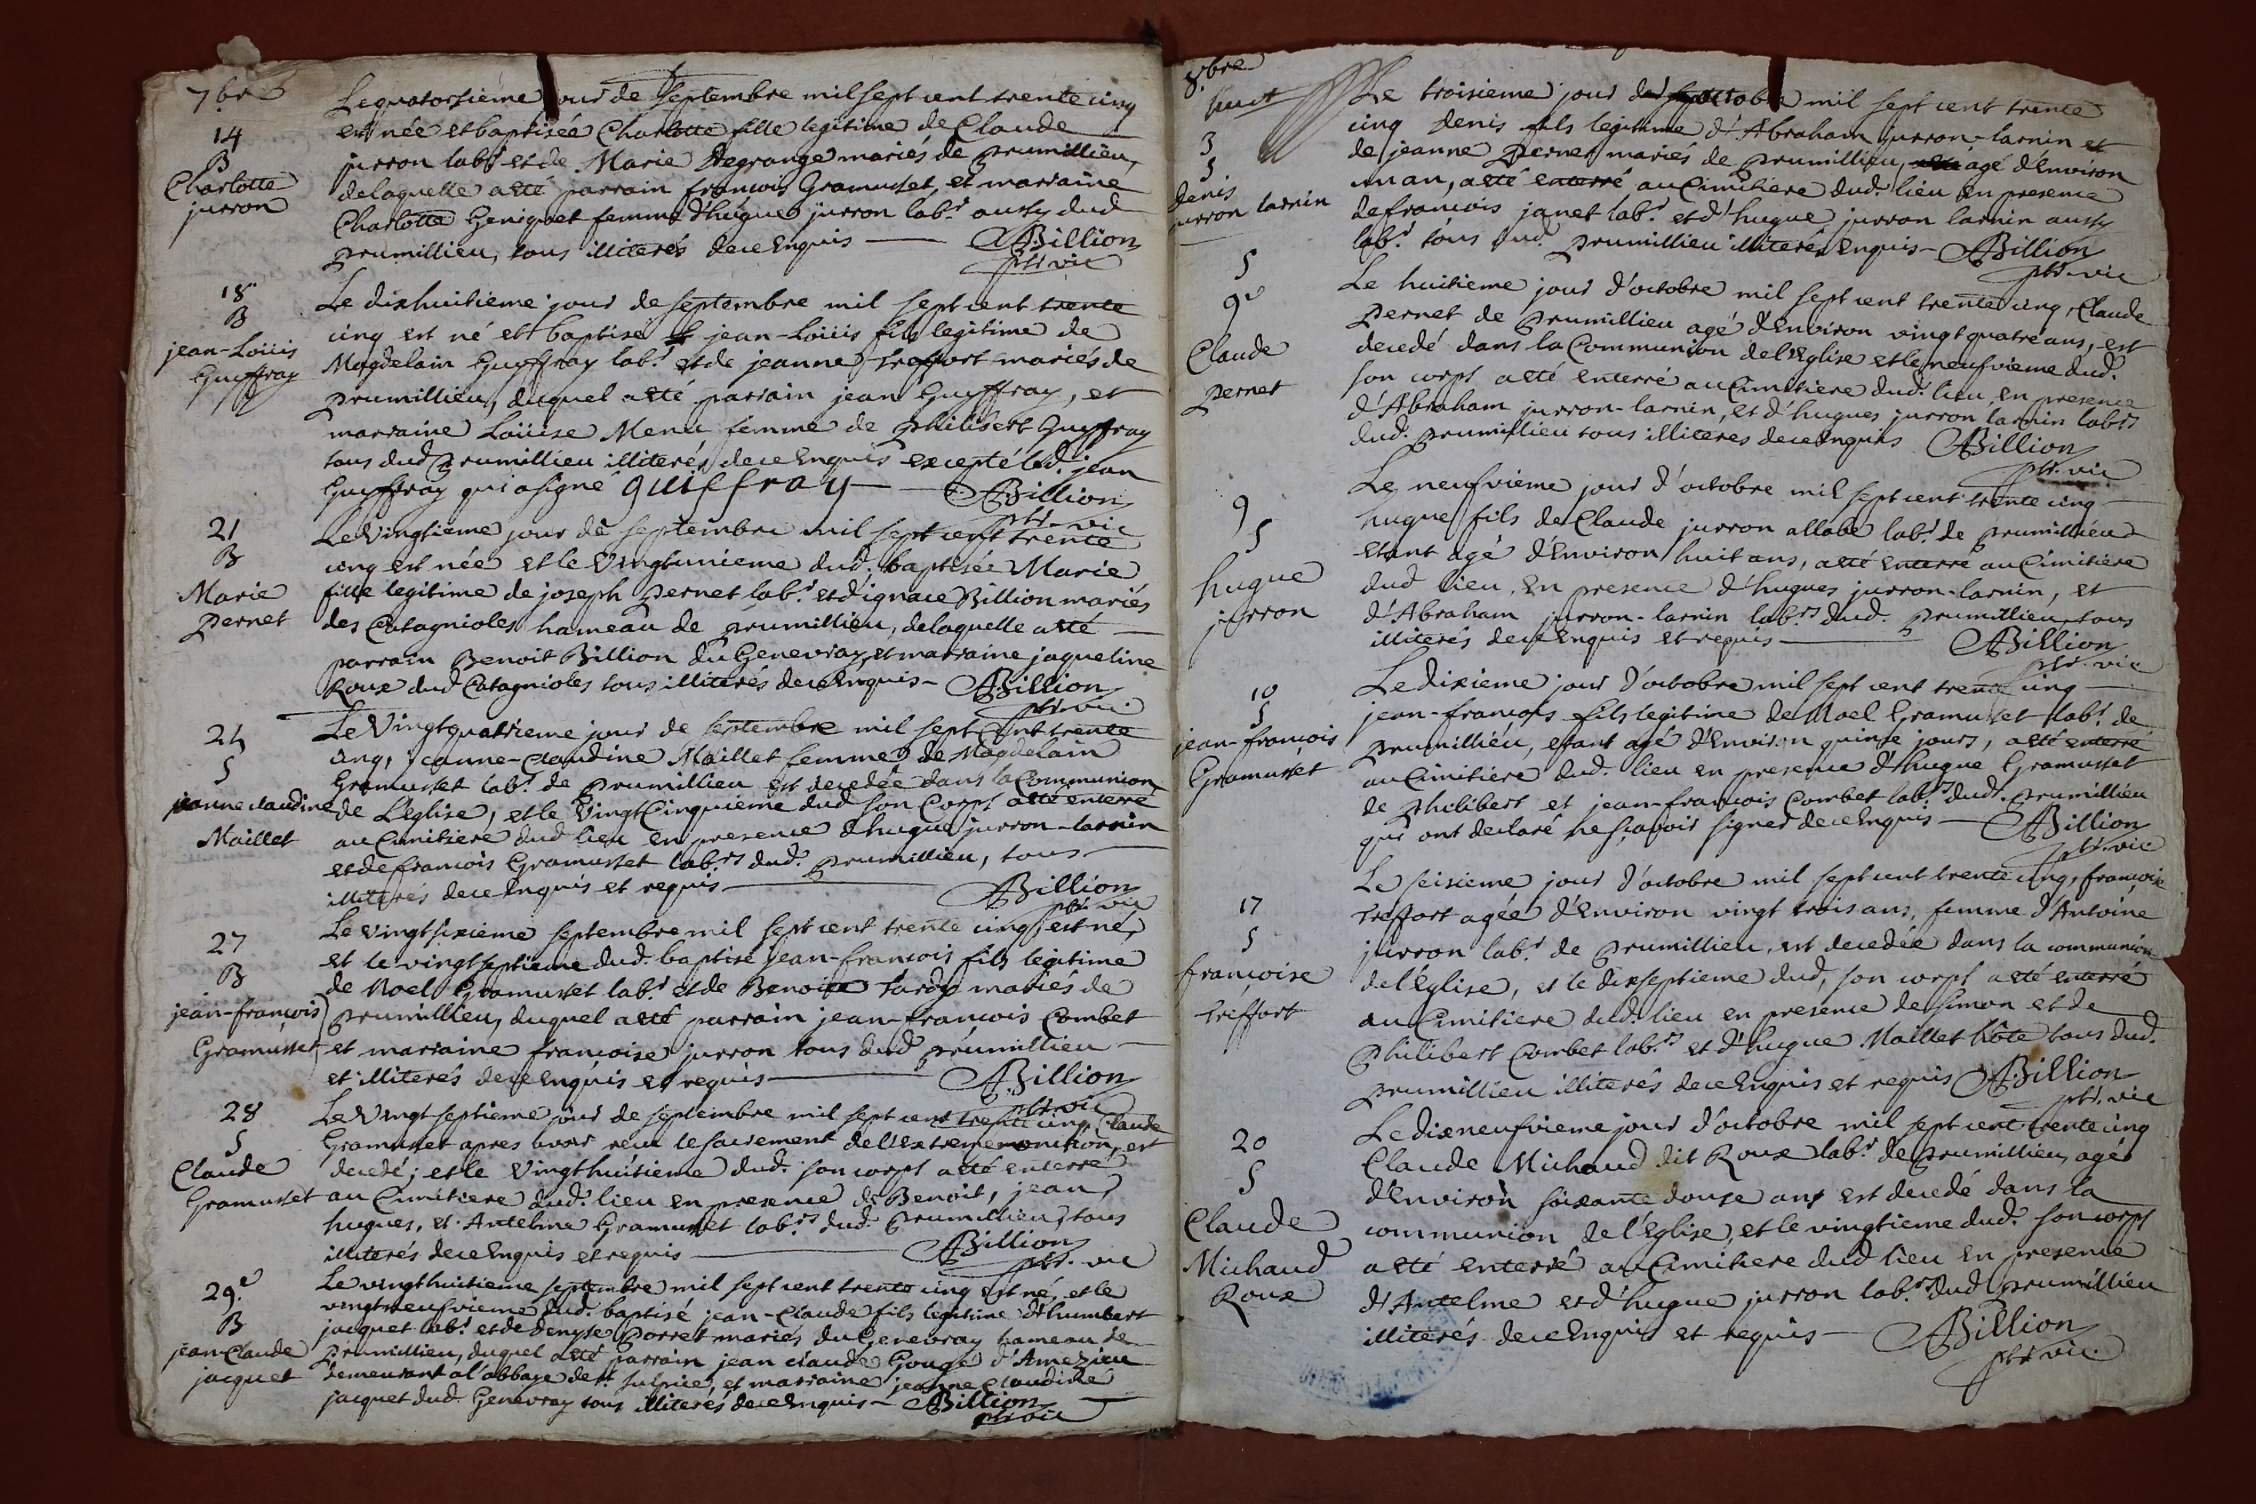 7bre
14
B
Charlotte
jurron
Le quatorsieme jour de septembre mil sept cent trente cinq
est née et baptisée Charlotte fille legitime de Claude
jurron labr. et de Marie Degrange mariés de prumillieu,
de laquelle a eté parrain françois Gramusset, et marraine
Charlotte Geniquet femme d'hugue jurron labr. aussy dud
prumillieu, tous illiterés de ce Enquis — Billion
ptr. vic
18
B
jean-Loüis
Guyffray
Le dixhuitieme jour de septembre mil sept cent trente
cinq est né et baptisé jean-Loüis fils legitime de
Magdelain Guyffray labr. et de jeanne treffort mariés de
prumillieu, duquel a eté parrain jean Guyffray, et
marraine Loüise Menu femme de philibert Guyffray
tous dud prumillieu illiterés de ce Enquis excepté led. jean
Guyffray qui a signé guiffray — Billion
ptr. vic
21
B
Marie
pernet
Le Vingtieme jour de septembre mil sept cent trente
cinq est née et le Vingtunieme dud. baptisée Marie
fille legitime de joseph pernet labr. et d'ignace Billion mariés
des Catagnioles hameau de prumillieu, de laquelle a eté
parrain Benoit Billion du Genevray, et marraine jaqueline
Roux dud Catagnioles tous illiterés de ce Enquis — Billion
ptr. vic.
24
S
jeanne claudine
Maillet
Le Vingtquatrieme jour de septembre mil sept Cent trente
cinq, jeanne-Claudine Maillet femme de Magdelain
Gramusset labr. de prumillieu est decedée dans la Communion
de L'eglise, et le VingtCinquieme dud son Corps a eté enterré
au Cimitiere dud lieu en presence d'hugue jurron-larnin
et de francois Gramusset labrs dud. prumillieu, tous
illiterés de ce Enquis et requis — Billion
ptr. vic
27
B
jean-françois
Gramusset
Le vingtsixieme septembre mil sept cent trente cinq est né,
et le vingtseptieme dud. baptisé jean-francois fils legitime
de Noel Gramusset labr. et de Benoite tardy mariés de
prumillieu, duquel a eté parrain jean-francois Combet
et marraine françoise jurron tous dud prumillieu
et illiterés de ce Enquis et requis — Billion
ptr. vic
28
S
Claude
Gramusset
Le Vingtseptieme jour de septembre mil sept cent trente cinq Claude
Gramusset apres avoir reçu le sacrement de l'extreme onction, est
decedé; et le Vingthuitieme dud. son corps a eté enterré
au Cimitiere dud. lieu en presence de Benoit, jean,
hugues, et Antelme Gramusset labrs dud. Prumillieu, tous
illiterés de ce Enquis et requis — Billion
ptr. vic
29e
B
jean-Claude
jacquet
Le vingthuitieme septembre mil sept cent trente cinq est né, et le
vingtneufvieme dud. baptisé jean-Claude fils legitime d'humbert
jacquet labr. et de denyse porret mariés du Genevray hameau de
prumillieu, duquel a eté parrain jean claude Gouge d'Amezieu
demeurant a l'abbaye de st. sulpice, et marraine jeanne Claudine
jacquet dud. Genevray tous illiterés de ce Enquis — Billion
ptr. vic
8bre
3
S
denis
jurron larnin
Le troisieme jour d'octobre mil sept cent trente
cinq denis fils legitime d'Abraham jurron-larnin et
de jeanne pernet mariés de prumillieu, agé d'Environ
un an, a eté enterré au Cimitiere dud. lieu En presence
de francois janet labr. et d'hugue jurron larnin aussy
labr. tous dud. prumillieu illiterés Enquis — Billion
ptr. vic
S
9e
Claude
pernet
Le huitieme jour d'octobre mil sept cent trente cinq, Claude
pernet de prumillieu agé d'Environ vingtquatre ans, est
decedé dans la Communion de l'Eglise et le neufvieme dud.
son corps a eté enterré au Cimitiere dud. lieu, en presence
d'Abraham jurron-larnin, et d'hugues jurron larnin labrs
dud. prumillieu tous illiteres de ce enquis Billion
ptr. vic
9
S
hugue
jurron
Le neufvieme jour d'octobre mil sept cent trente cinq
hugue fils de Claude jurron allabe labr. de prumillieu
etant agé d'Environ huit ans, a eté enterré au Cimitiere
dud lieu, en presence d'hugues jurron-larnin, et
d'Abraham jurron-larnin labrs dud. prumillieu, tous
illiterés de ce enquis et requis — Billion
ptr. vic
10
S
jean-francois
Gramusset
Le dixieme jour d'octobre mil sept cent trente cinq
jean-françois fils legitime de Noel Gramusset labr. de
prumillieu, etant agé d'Environ quinse jours, a eté enterré
au Cimitiere dud. lieu en presence d'hugue Gramusset
de philibert et jean-francois Combet labrs dud. prumillieu
qui ont declaré ne sçavoir signer de ce enquis — Billion
ptr. vic
17
S
françoise
treffort
Le seisieme jour d'octobre mil sept cent trente cinq, françoise
treffort agée d'Environ vingt trois ans, femme d'Antoine
jurron labr. de prumillieu, est decedée dans la communion
de l'Eglise, et le dixseptieme dud, son corps a eté enterré
au Cimitiere dud. lieu en presence de simon et de
Philibert Combet labrs. et d'hugue Maillet hôte tous dud.
prumillieu illiterés de ce Enquis et requis Billion
ptr. vic
20
S
Claude
Michaud
Roux
Le dixneufvieme jour d'octobre mil sept cent trente cinq
Claude Michaud dit Roux labr. de prumillieu, agé
d'Environ soixante douse ans est decedé dans la
communion de l'Eglise, et le vingtieme dud. son corps
a eté enterré au Cimitiere dud lieu en presence
d'Antelme et d'hugue jurron labrs dud prumillieu
illiterés de ce Enquis et requis — Billion
ptr. vic.